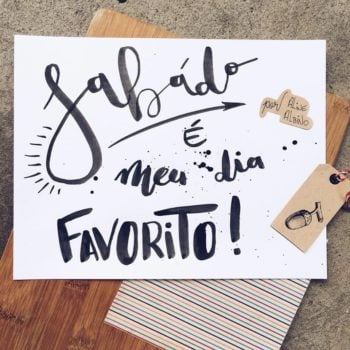 Sabádo
É
meu dia
FAVORITO!
por/ ALINE
ALBINO